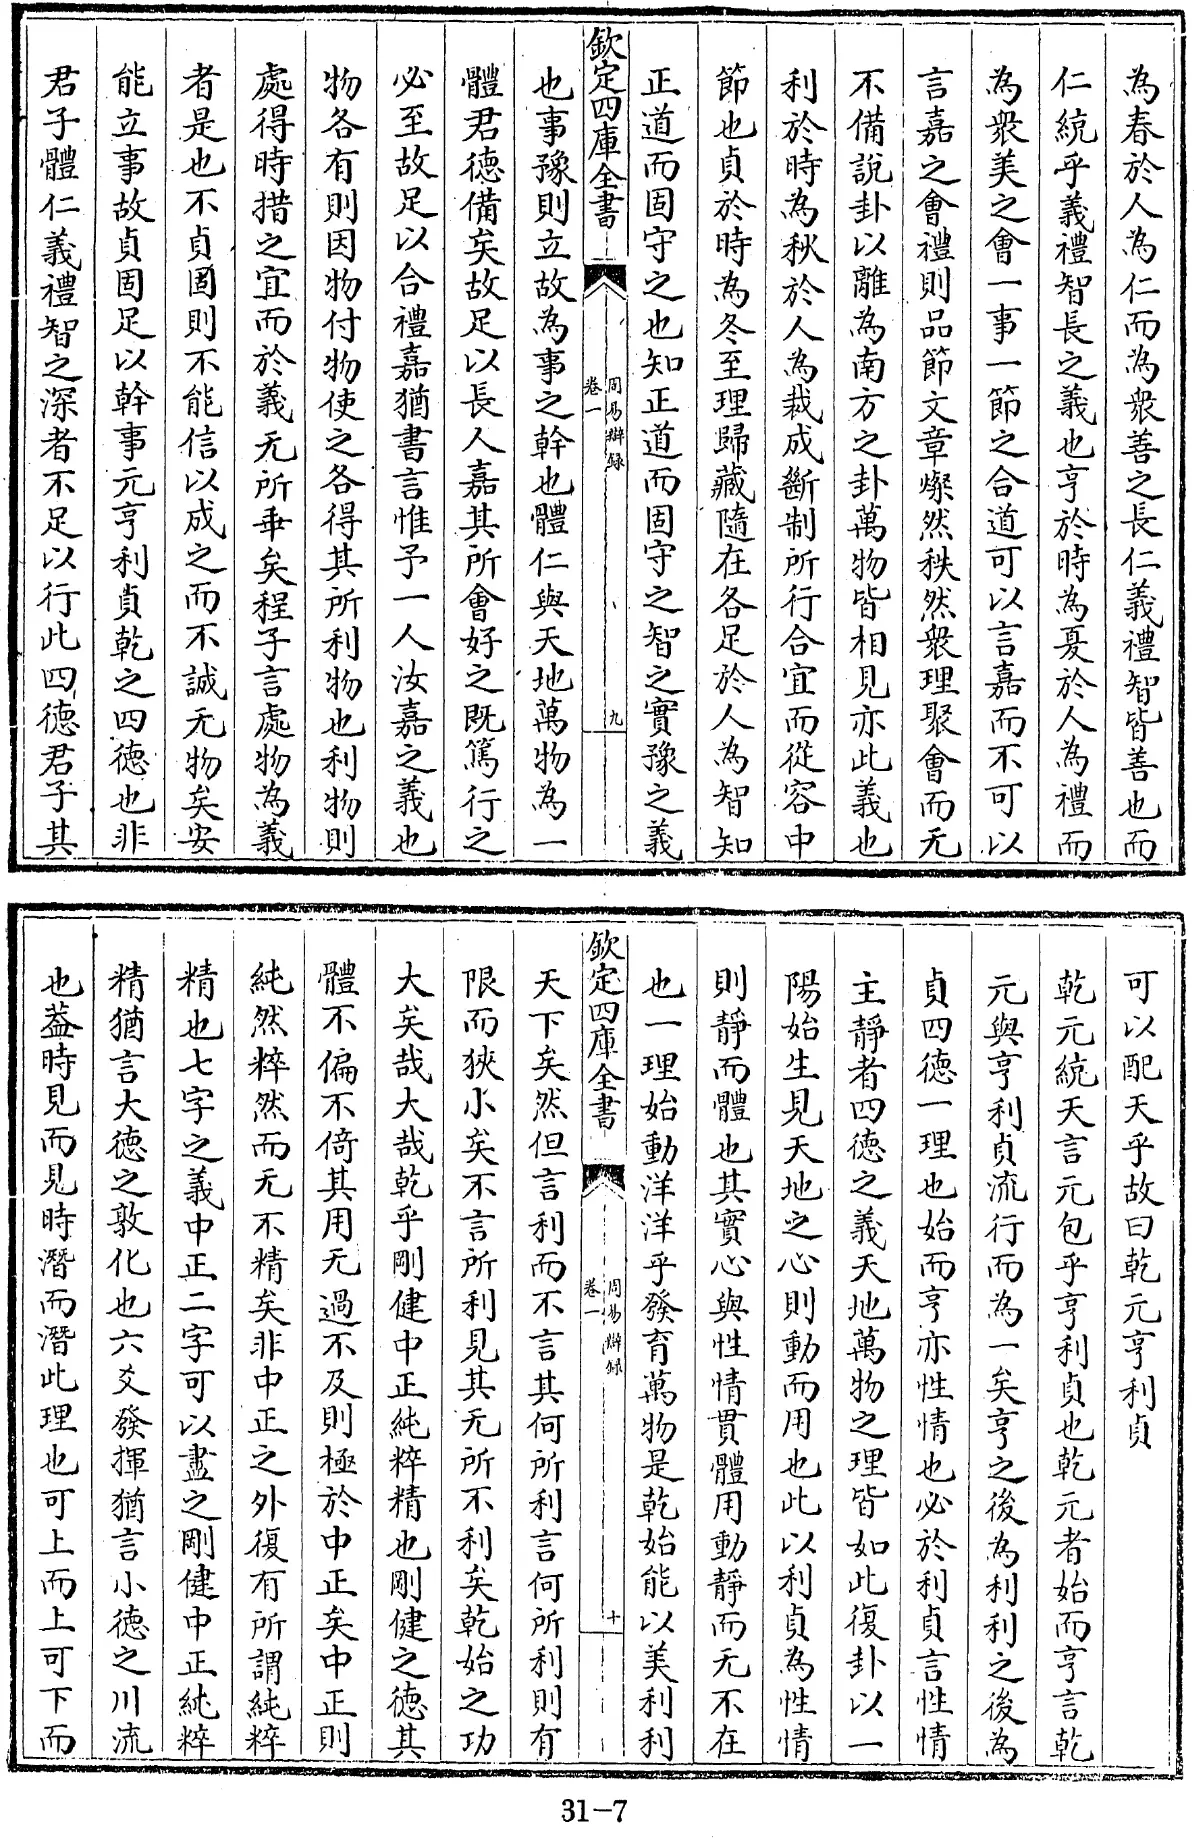 為春於人為仁而為衆善之長仁義禮智皆善也而
仁統乎義禮智長之義也亨於時為夏於人為禮而
為衆美之會一事一節之合道可以言嘉而不可以
言嘉之會禮則品節文章燦然秩然衆理聚會而无
不備說卦以離為南方之卦萬物皆相見亦此義也
利於時為秋於人為裁成斷制所行合宜而從容中
節也貞於時為冬至理歸藏隨在各足於人為智知
正道而固守之也知正道而固守之智之實豫之義
欽定四庫全書
周易辯録
卷一
九
也事豫則立故為事之幹也體仁與天地萬物為一
體君德備矣故足以長人嘉其所會好之既篤行之
必至故足以合禮嘉猶書言惟予一人汝嘉之義也
物各有則因物付物使之各得其所利物也利物則
處得時措之宜而於義无所乖矣程子言處物為義
者是也不貞固則不能信以成之而不誠无物矣安
能立事故貞固足以幹事元亨利貞乾之四德也非
君子體仁義禮智之深者不足以行此四德君子其
可以配天乎故曰乾元亨利貞
乾元統天言元包乎亨利貞也乾元者始而亨言乾
元與亨利貞流行而為一矣亨之後為利利之後為
貞四德一理也始而亨亦性情也必於利貞言性情
主靜者四德之義天地萬物之理皆如此復卦以一
陽始生見天地之心則動而用也此以利貞為性情
則靜而體也其實心與性情貫體用動靜而无不在
也一理始動洋洋乎發育萬物是乾始能以美利利
欽定四庫全書
周易辯録
卷一
十
天下矣然但言利而不言其何所利言何所利則有
限而狹小矣不言所利見其无所不利矣乾始之功
大矣哉大哉乾乎剛健中正純粹精也剛健之德其
體不偏不倚其用无過不及則極於中正矣中正則
純然粹然而无不精矣非中正之外復有所謂純粹
精也七字之義中正二字可以盡之剛健中正純粹
精猶言大德之敦化也六爻發揮猶言小德之川流
也葢時見而見時潛而潛此理也可上而上可下而
31-7